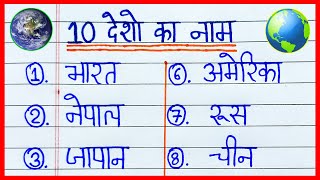 10 देशो का नाम
①. भारत ⑥. अमेरिका
②. नेपाल ⑦. रूस
③. जापान ⑧. चीन